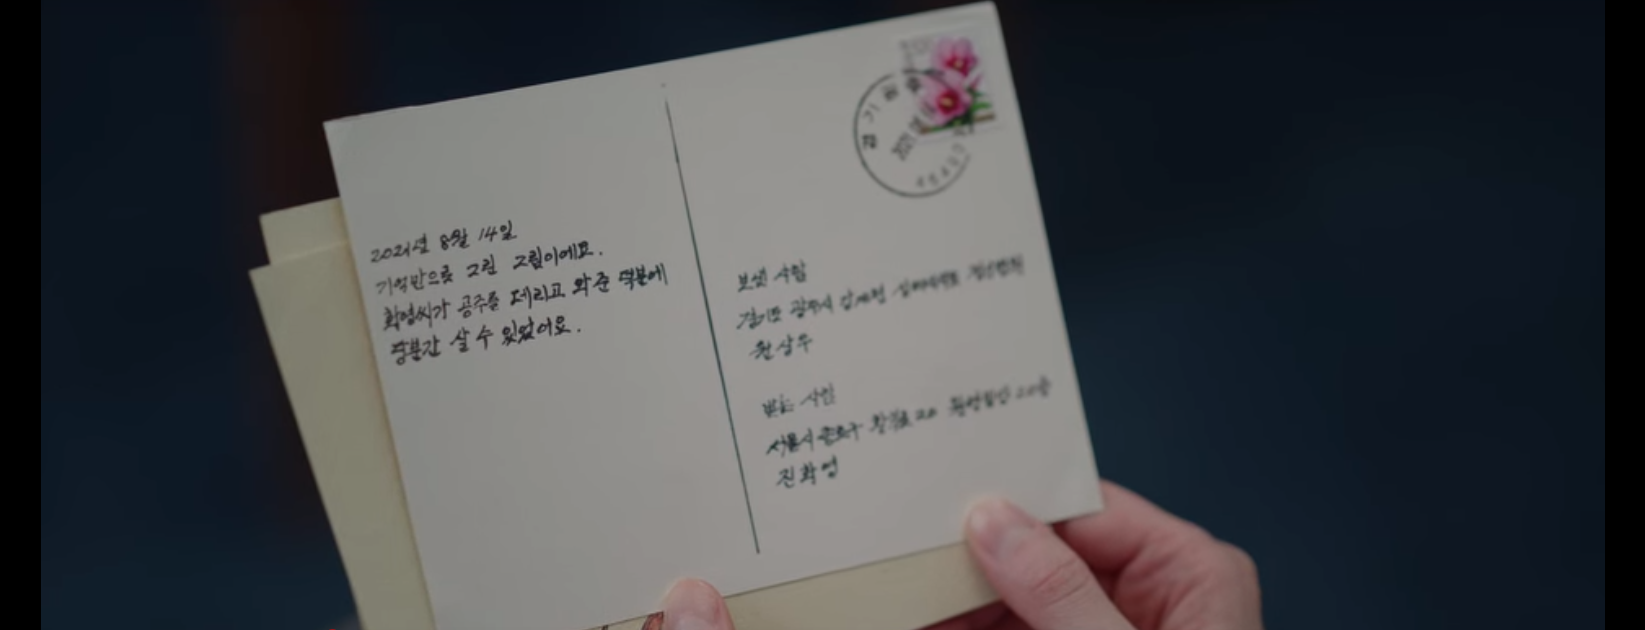 2021년 8월 14일
기억만으로 그린 그림이에요.
화영씨가 공주를 데리고 와 준 덕분에
당분간 살 수 있었어요.
경기 광주
2021
보낸 사람
경기도 광주시
원상우
받는 사람
서울시 종로구
진화영